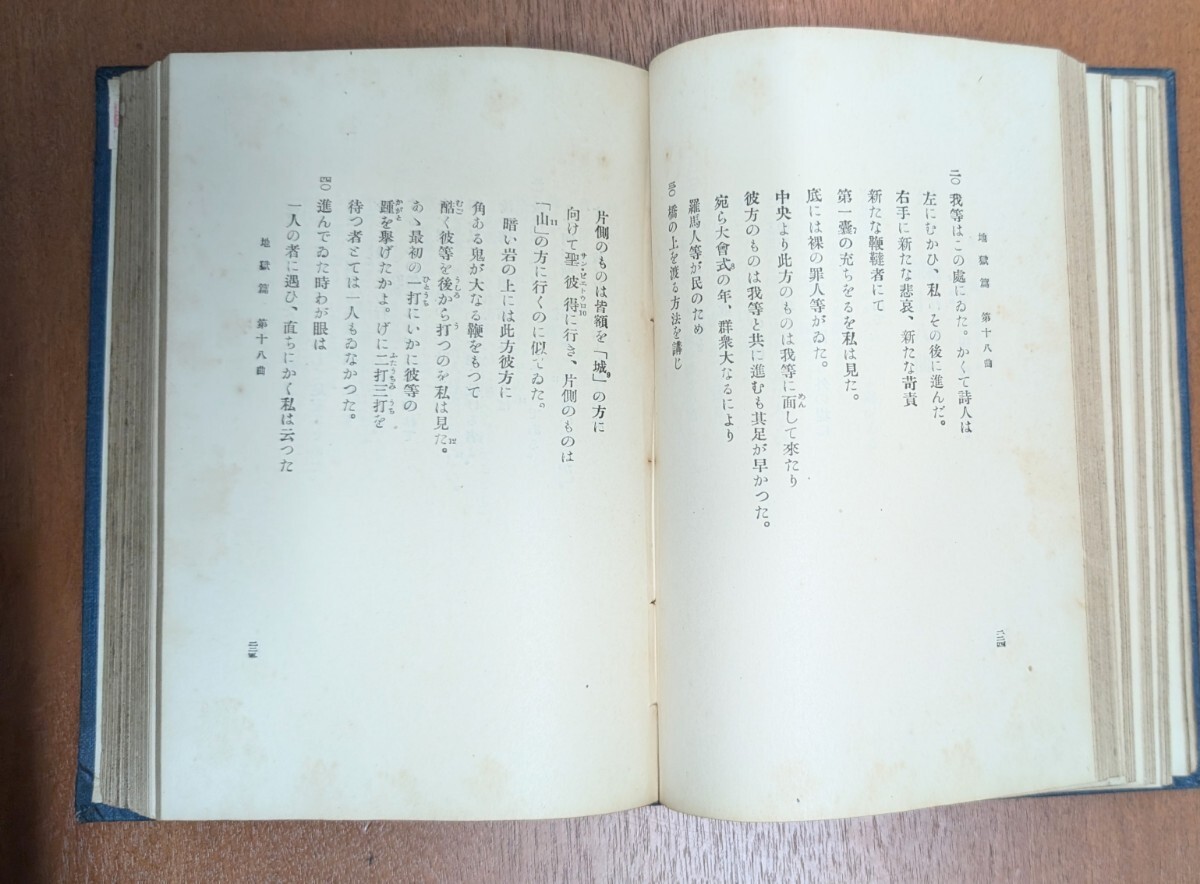 地獄篇 第十八曲
二〇 我等はこの處にゐた。かくて詩人は
左にむかひ、私もその後に進んだ。
右手に新たな悲哀、新たな苛責
新たな鞭韃者にて
第一嚢の充ちをるを私は見た。
底には裸の罪人等がゐた。
中央より此方のものは我等に面して來たり
彼方のものは我等と共に進むも其足が早かつた。
宛ら大會式の年、群衆大なるにより
羅馬人等が民のため
三〇 橋の上を渡る方法を講じ
二二四
片側のものは皆額を「城」の方に
向けて聖彼得に行き、片側のものは
「山」の方に行くのに似てゐた。
暗い岩の上には此方彼方に
角ある鬼が大なる鞭をもつて
酷く彼等を後から打つのを私は見た。
あゝ最初の一打にいかに彼等の
踵を擧げたかよ。げに二打三打を
待つ者とては一人もゐなかつた。
四〇 進んでゐた時わが眼は
一人の者に遇ひ、直ちにかく私は云つた
地獄篇 第十八曲
二二五